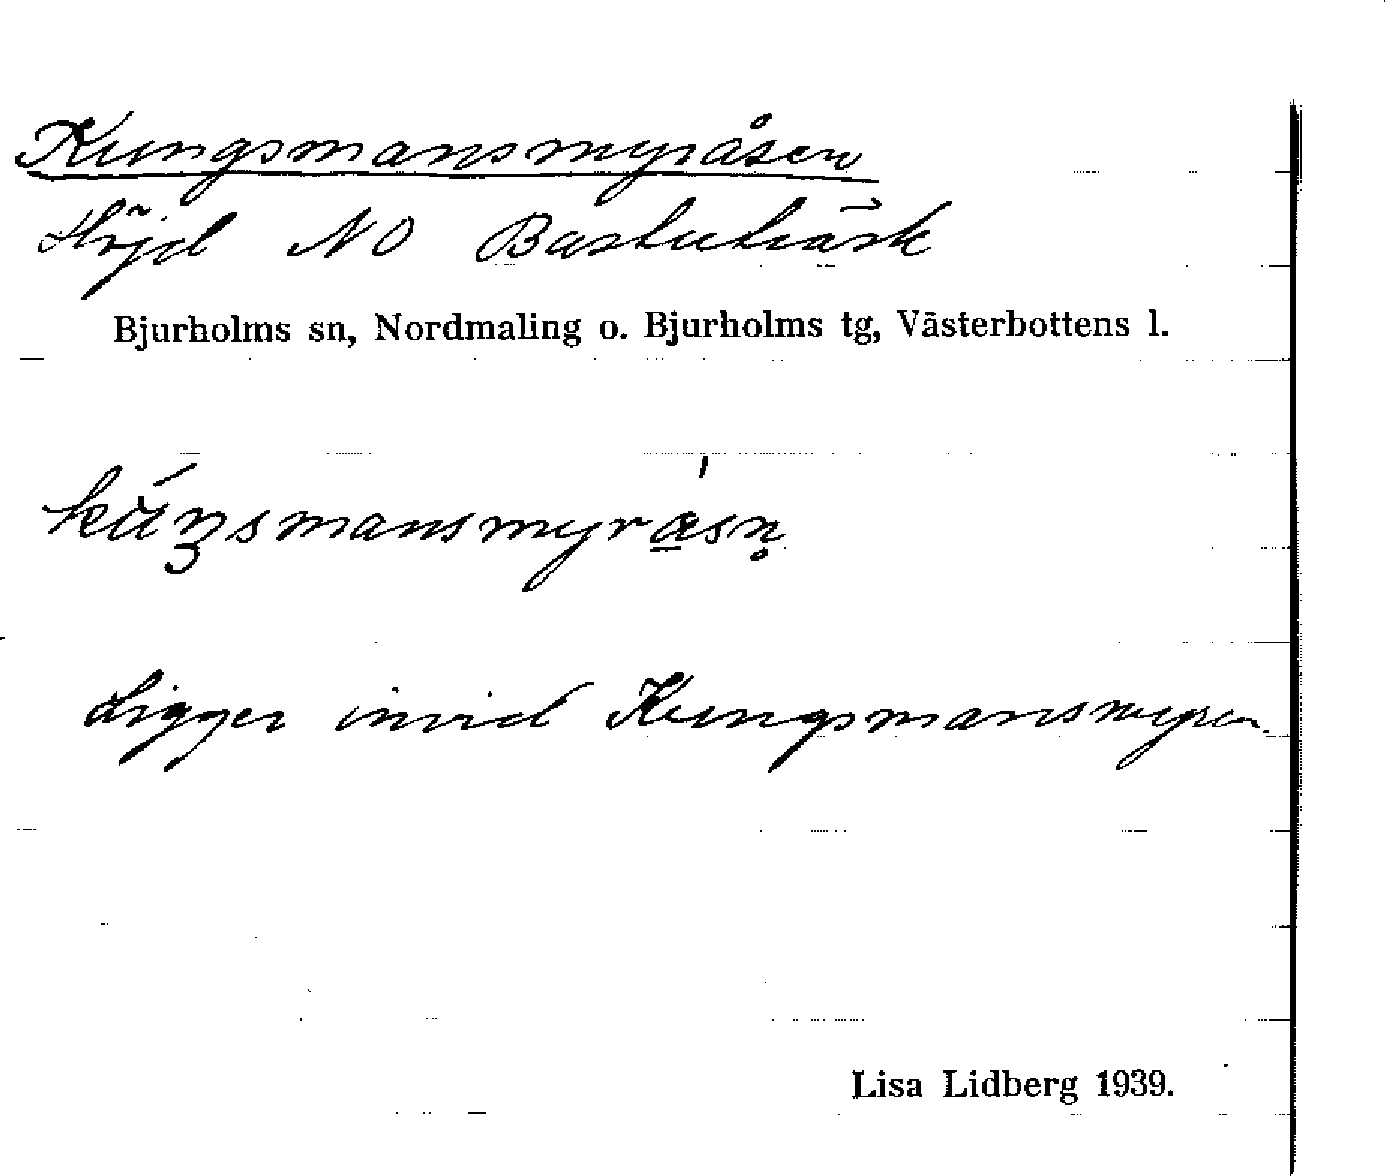 Kungsmansmyråsen
Höjd NO Bastuträsk
Bjurholms sn, Nordmaling o. Bjurholms tg, Västerbottens l.
Ligger invid Kungsmansmyren.
Lisa Lidberg 1939.